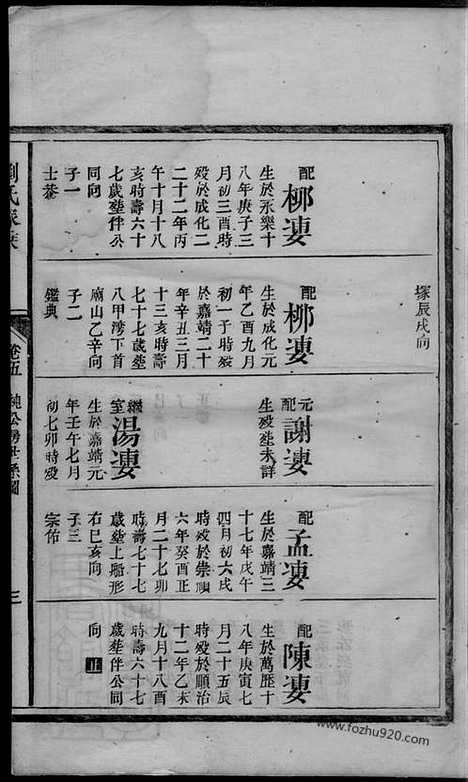 塚辰戌向
配柳婆
生於永樂十
八年庚子三
月初三酉時
殁於成化二
二十二年丙
午十月十八
亥時壽六十
七歲塟伴公
同向
子一
士
配柳婆
生於成化元
年乙酉九月
初一子時殁
於嘉靖二十
年辛丑三月
十三亥時壽
七十七歲塟
八甲湾下首
廟山乙辛向
子二
鑑典
元配謝婆
生殁塟未詳
繼室湯婆
生於嘉靖元
年壬午七月
初七卯時殁
配孟婆
生於嘉靖三
十七年戊午
四月初六戌
時殁於崇禎
六年癸酉正
月二十七卯
時壽七十七
歲塟上船形
右巳亥向
子三
宗佑
配陳婆
生於萬歷十
八年庚寅七
月二十五辰
時殁於順治
十二年乙未
九月十八酉
時壽六十七
歲塟伴公同
向 止
劉氏家乘
卷五
純公房世系圖
三
www.fozhu920.com